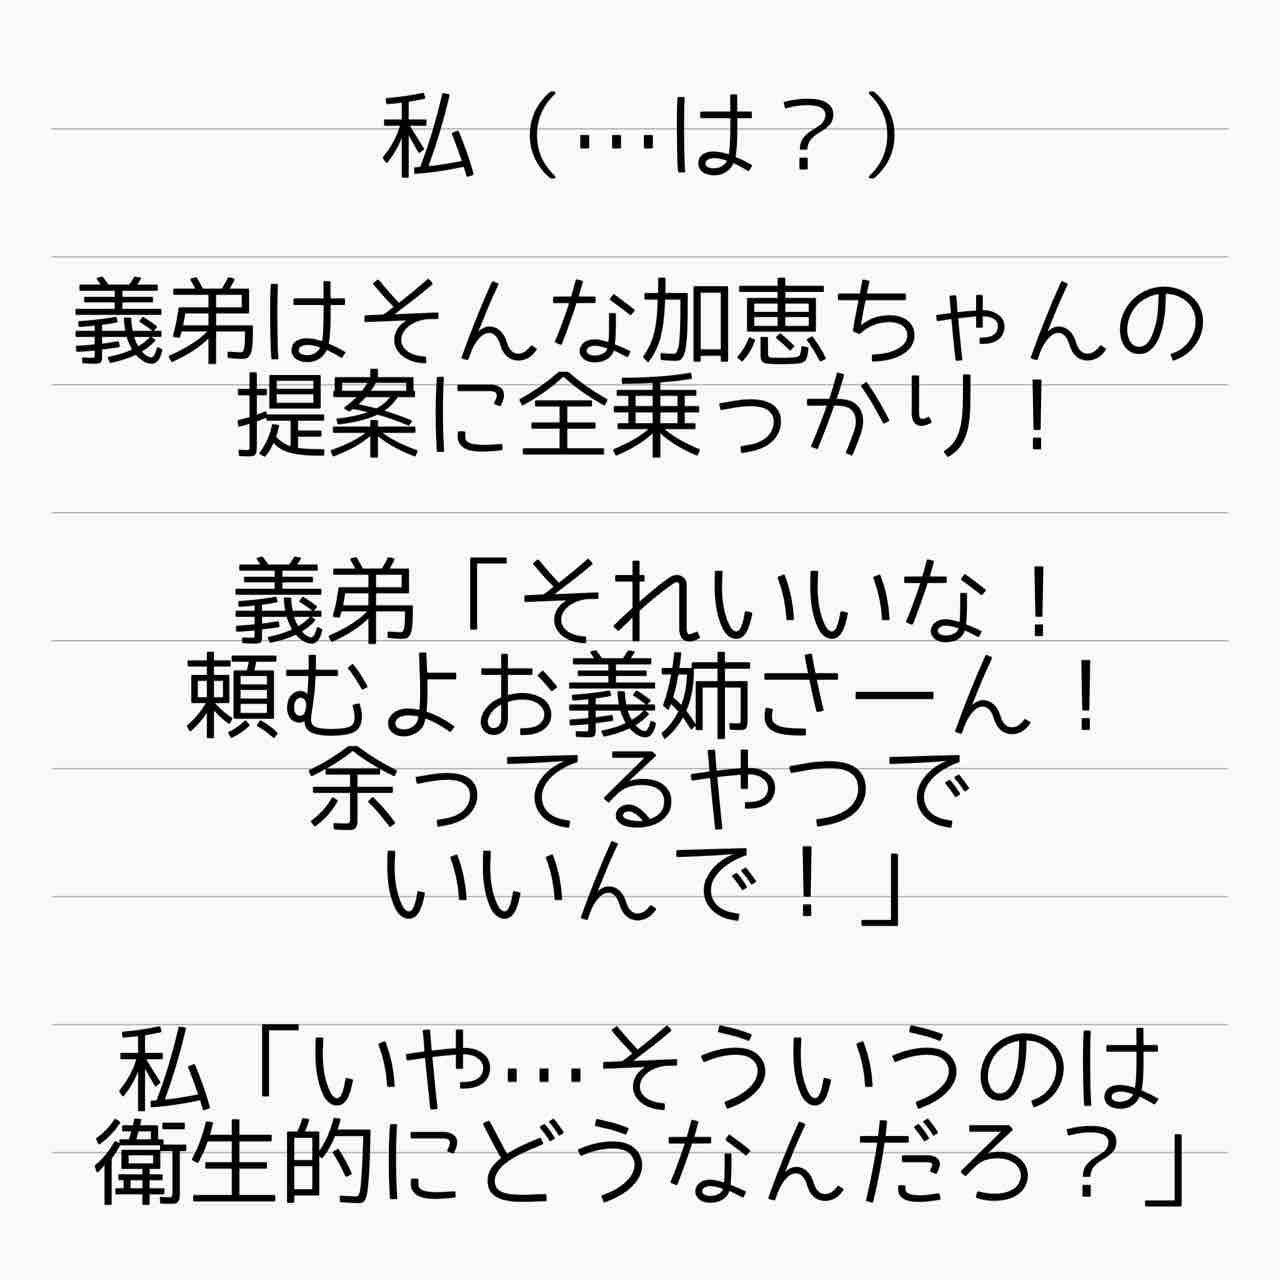 私（…は？）
義弟はそんな加恵ちゃんの
提案に全乗っかり！
義弟「それいいな！
頼むよお義姉さーん！
余ってるやつで
いいんで！」
私「いや…そういうのは
衛生的にどうなんだろ？」